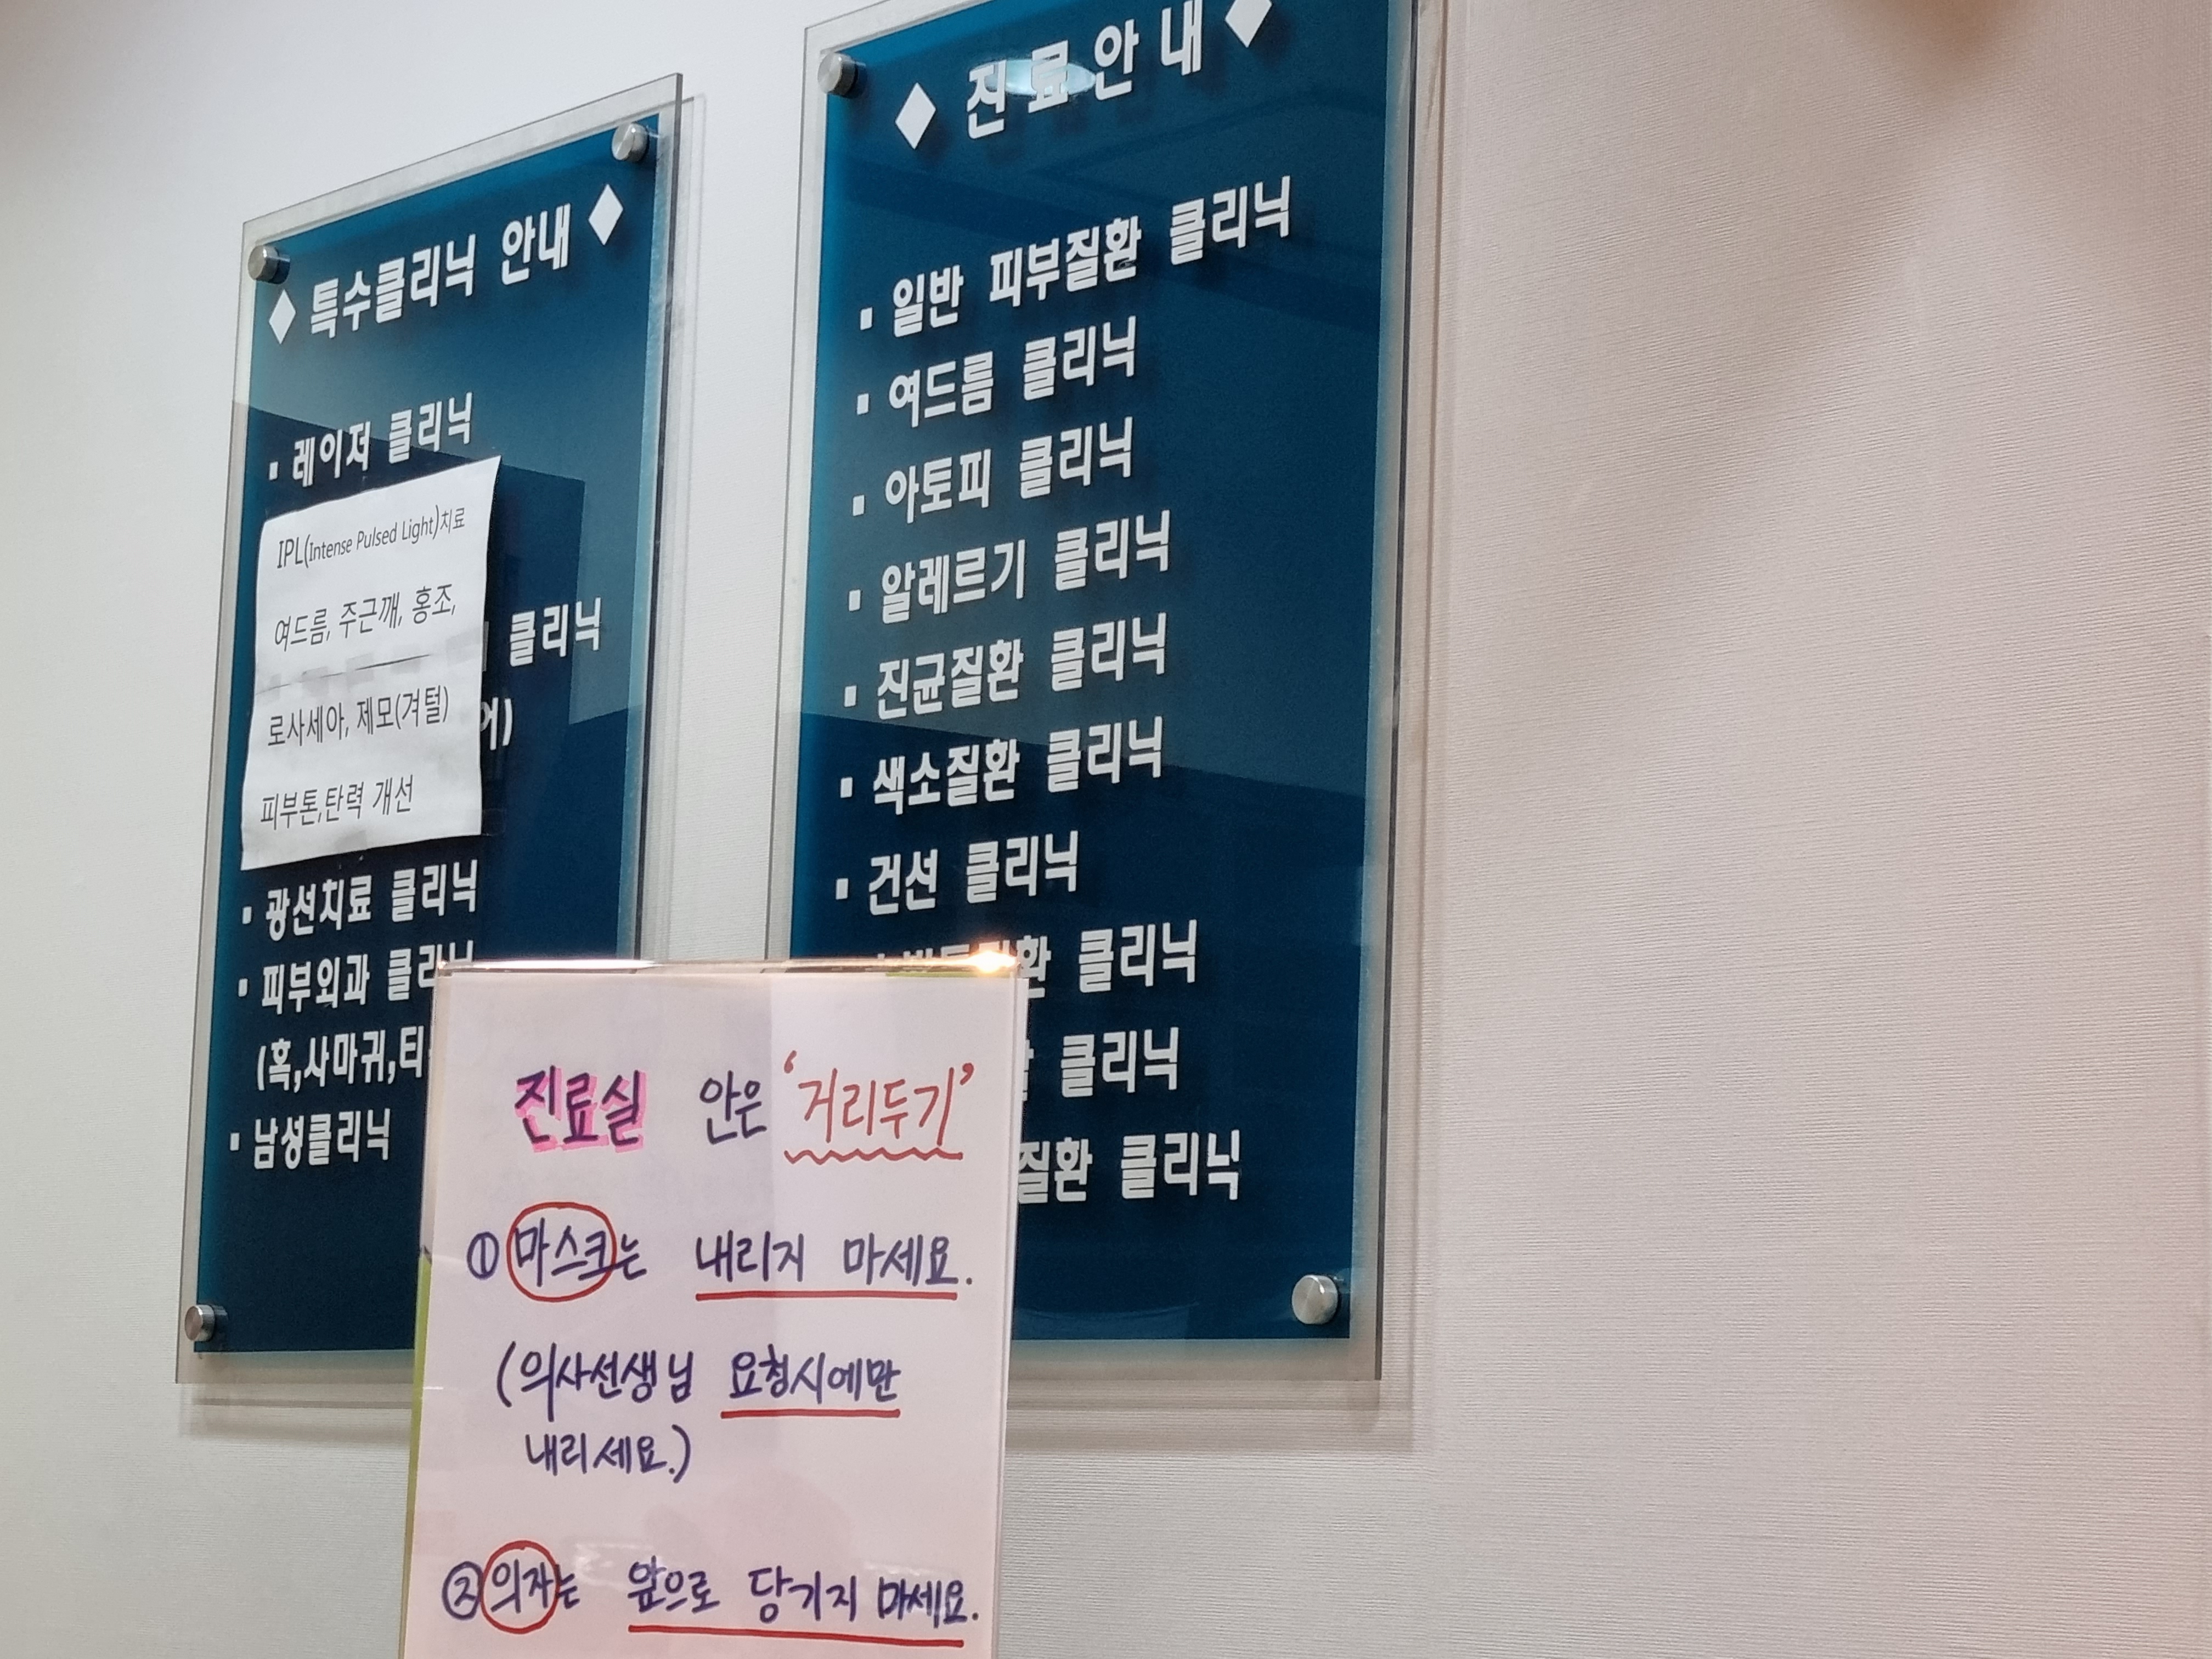 ◆ 특수클리닉 안내 ◆
▪ 레이저 클리닉
IPL(Intense Pulsed Light)치료
여드름, 주근깨, 홍조,
클리닉
로사세아, 제모(겨털)
어)
피부톤,탄력 개선
▪ 광선치료 클리닉
▪ 피부외과 클리닉
(혹,사마귀,티
▪ 남성클리닉
◆ 진료안내 ◆
▪ 일반 피부질환 클리닉
▪ 여드름 클리닉
▪ 아토피 클리닉
▪ 알레르기 클리닉
▪ 진균질환 클리닉
▪ 색소질환 클리닉
▪ 건선 클리닉
환 클리닉
클리닉
질환 클리닉
진료실 안은 '거리두기'
① 마스크는 내리지 마세요.
(의사선생님 요청시에만
내리세요.)
② 의자는 앞으로 당기지 마세요.